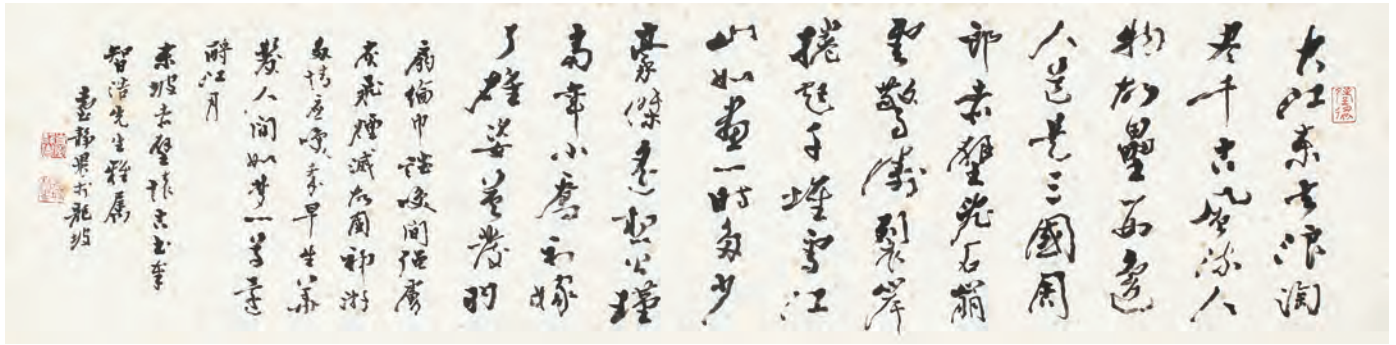 大江東去浪淘
尽千古風流人
物故壘西邊
人道是三國周
郎赤壁亂石崩
雲驚濤裂岸
捲起千堆雪江
山如畫一時多少
豪傑遙想公瑾
當年小喬初嫁
了雄姿英發羽
扇綸巾談笑間强虜
灰飛煙滅故國神游
多情應笑我早生華
髮人間如夢一尊還
酹江月
東坡赤壁懷古書奉
智浩先生雅屬
臺靜農於龍坡